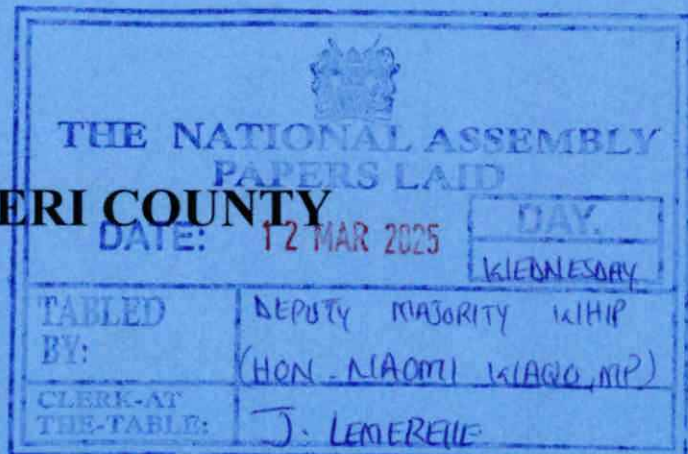 THE NATIONAL ASSEMBLY
PAPERS LAID
ERI COUNTY
DATE: 12 MAR 2025
DAY.
WEDNESDAY
TABLED
BY:
DEPUTY MAJORITY WHIP
(HON. NAOMI WAQO, MP)
CLERK-AT
THE-TABLE:
J. LEMERELLE